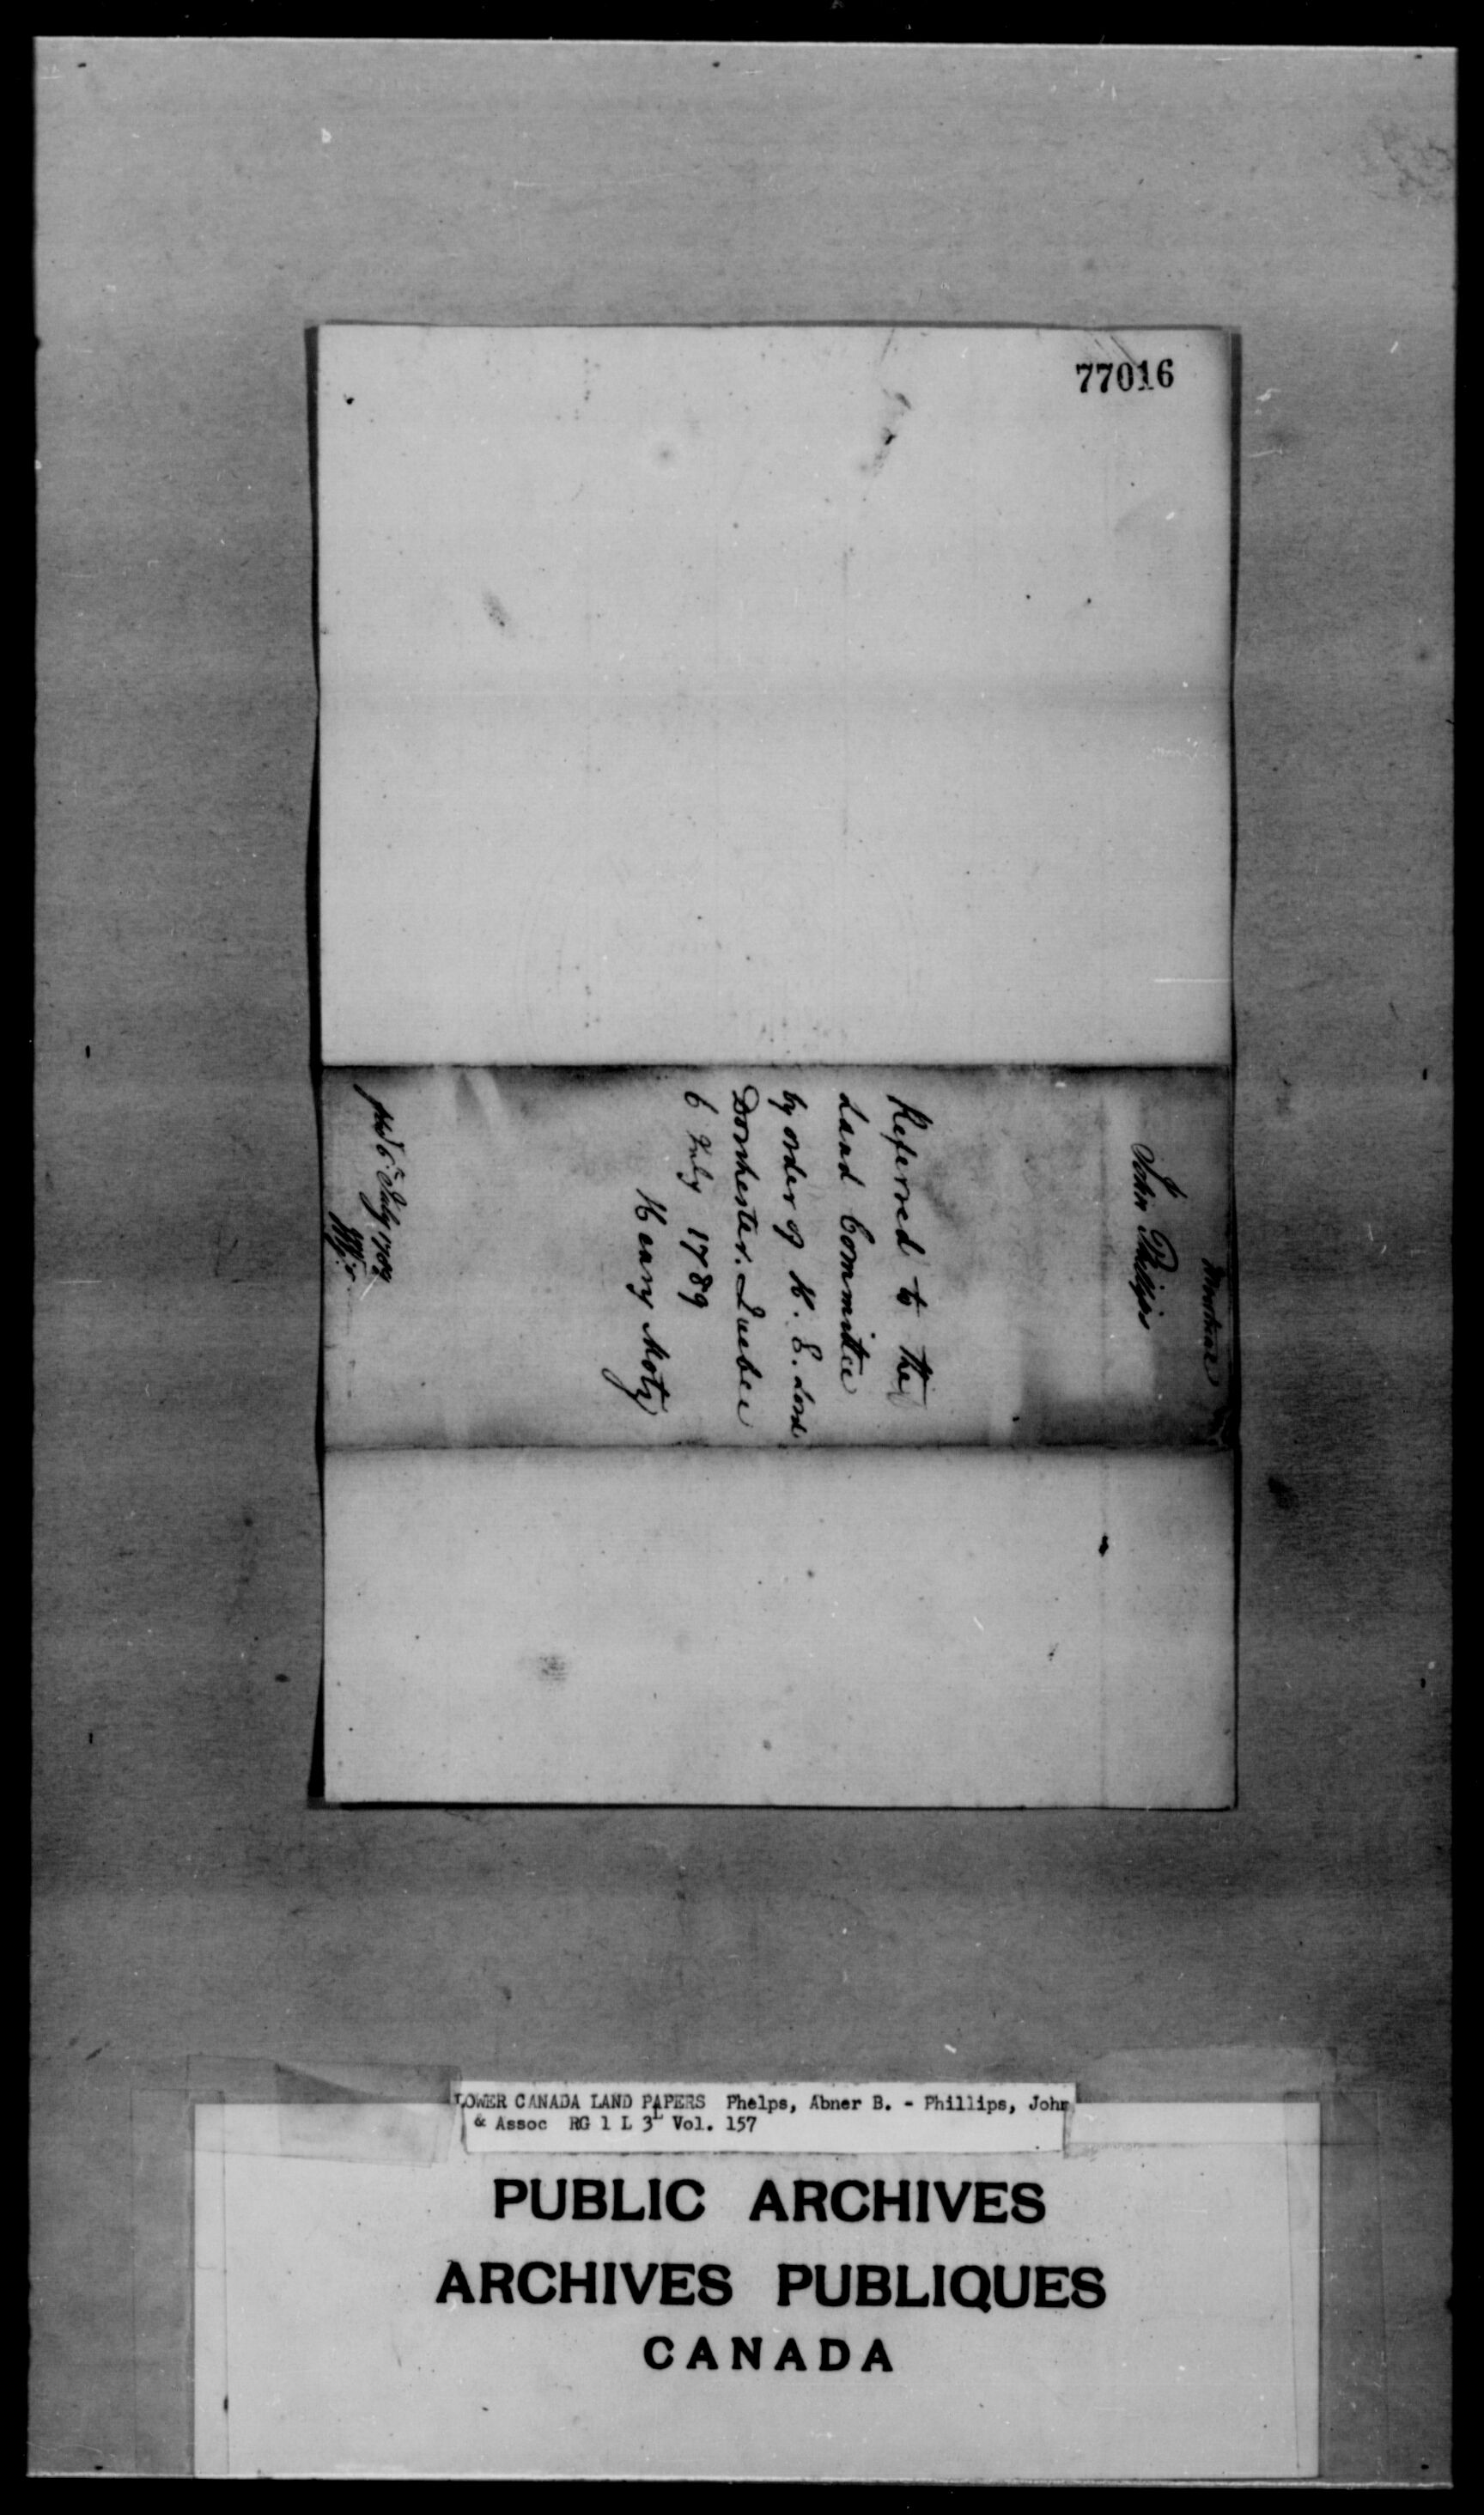 77016
Montreal
John Phillips
Referred to the
Land Committee
by order of H. E. Lord
Dorchester. Quebec
6 July 1789
Henry Motz
6th July 1789
LOWER CANADA LAND PAPERS Phelps, Abner B. - Phillips, John
& Assoc RG 1 L 3L Vol. 157
PUBLIC ARCHIVES
ARCHIVES PUBLIQUES
CANADA